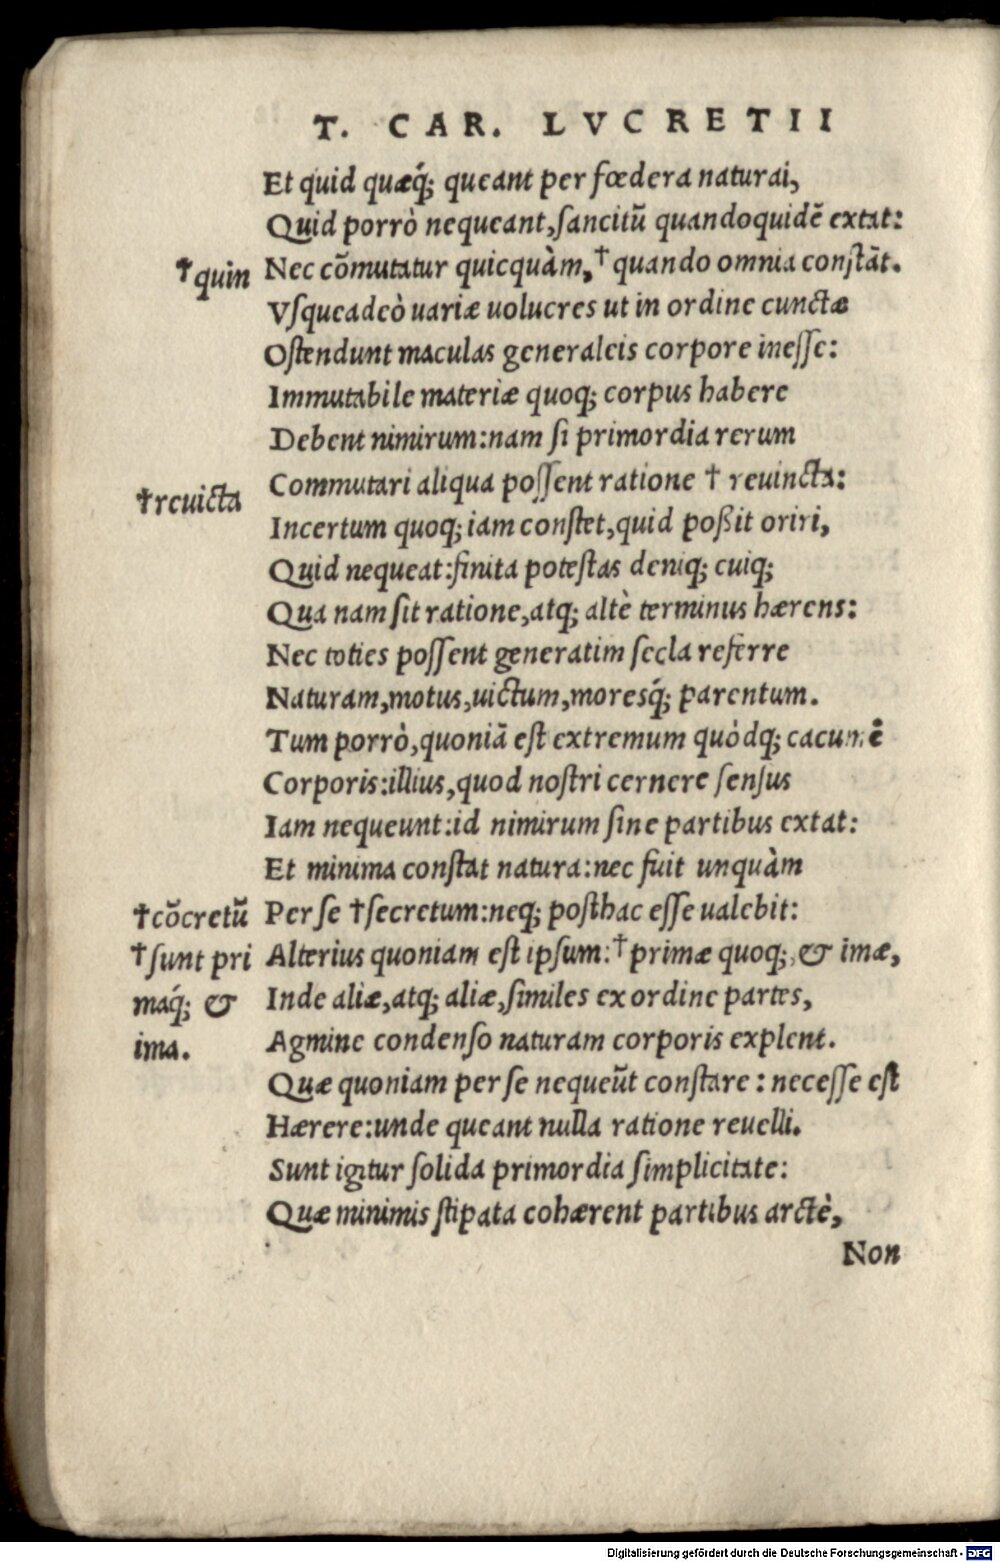 T. CAR. LVCRETII
Et quid quæq́; queant per fœdera naturai,
Quid porrò nequeant, ſancitũ quandoquidē extat:
†quin Nec cõmutatur quicquàm, †quando omnia conſtāt.
Vſqueadeò uariæ uolucres ut in ordine cunctæ
Oſtendunt maculas generaleis corpore ineſſe:
Immutabile materiæ quoq; corpus habere
Debent nimirum: nam ſi primordia rerum
†reuicta Commutari aliqua poſſent ratione † reuincta:
Incertum quoq; iam conſtet, quid poßit oriri,
Quid nequeat: finita poteſtas deniq; cuiq;
Qua nam ſit ratione, atq; altè terminus hærens:
Nec toties poſſent generatim ſecla referre
Naturam, motus, uictum, moresq́; parentum.
Tum porrò, quoniā eſt extremum quòdq; cacumē
Corporis: illius, quod noſtri cernere ſenſus
Iam nequeunt: id nimirum ſine partibus extat:
Et minima conſtat natura: nec fuit unquàm
†cõcretũ Per ſe †ſecretum: neq; poſthac eſſe ualebit:
†ſunt pri Alterius quoniam eſt ipſum: †primæ quoq;, & imæ,
maq́; & Inde aliæ, atq; aliæ, ſimiles ex ordine partes,
ima. Agmine condenſo naturam corporis explent.
Quæ quoniam per ſe nequeũt conſtare: neceſſe eſt
Hærere: unde queant nulla ratione reuelli.
Sunt igitur ſolida primordia ſimplicitate:
Quæ minimis ſtipata cohærent partibus arctè,
Non
Digitalisierung gefördert durch die Deutsche Forschungsgemeinschaft - DFG